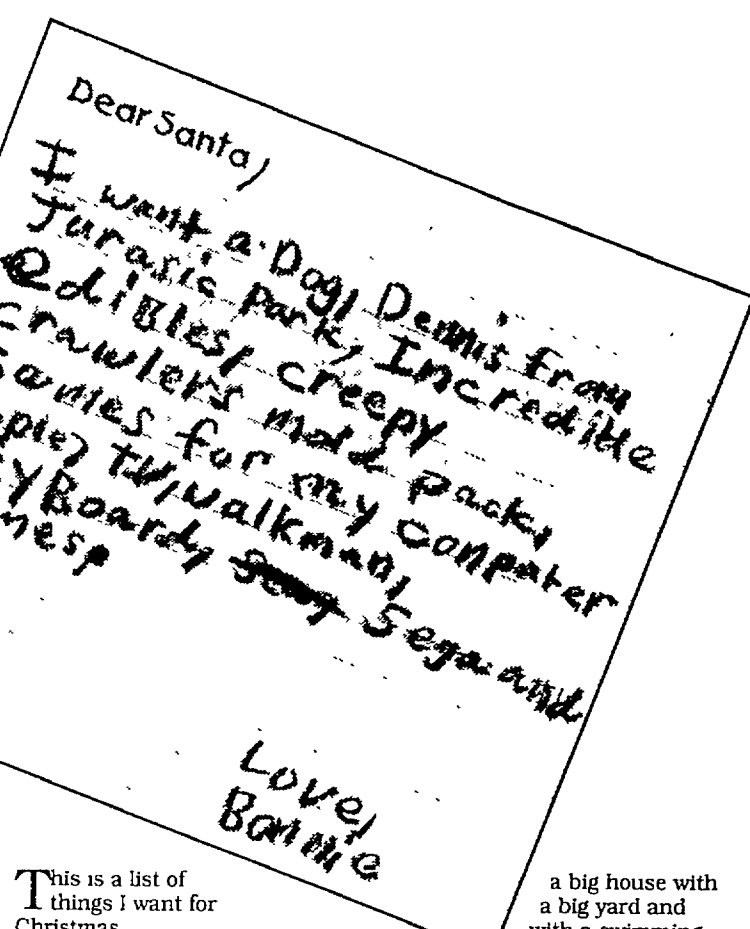 Dear Santa,
I want a Dog, Dennis from
Jurasic Park, Incredible
edibles, creepy
crawlers mold pack,
Games for my computer
TV, walkman,
Board, Sega and
Love,
Bonnie
This is a list of
things I want for
Christmas
a big house with
a big yard and
with a swimming